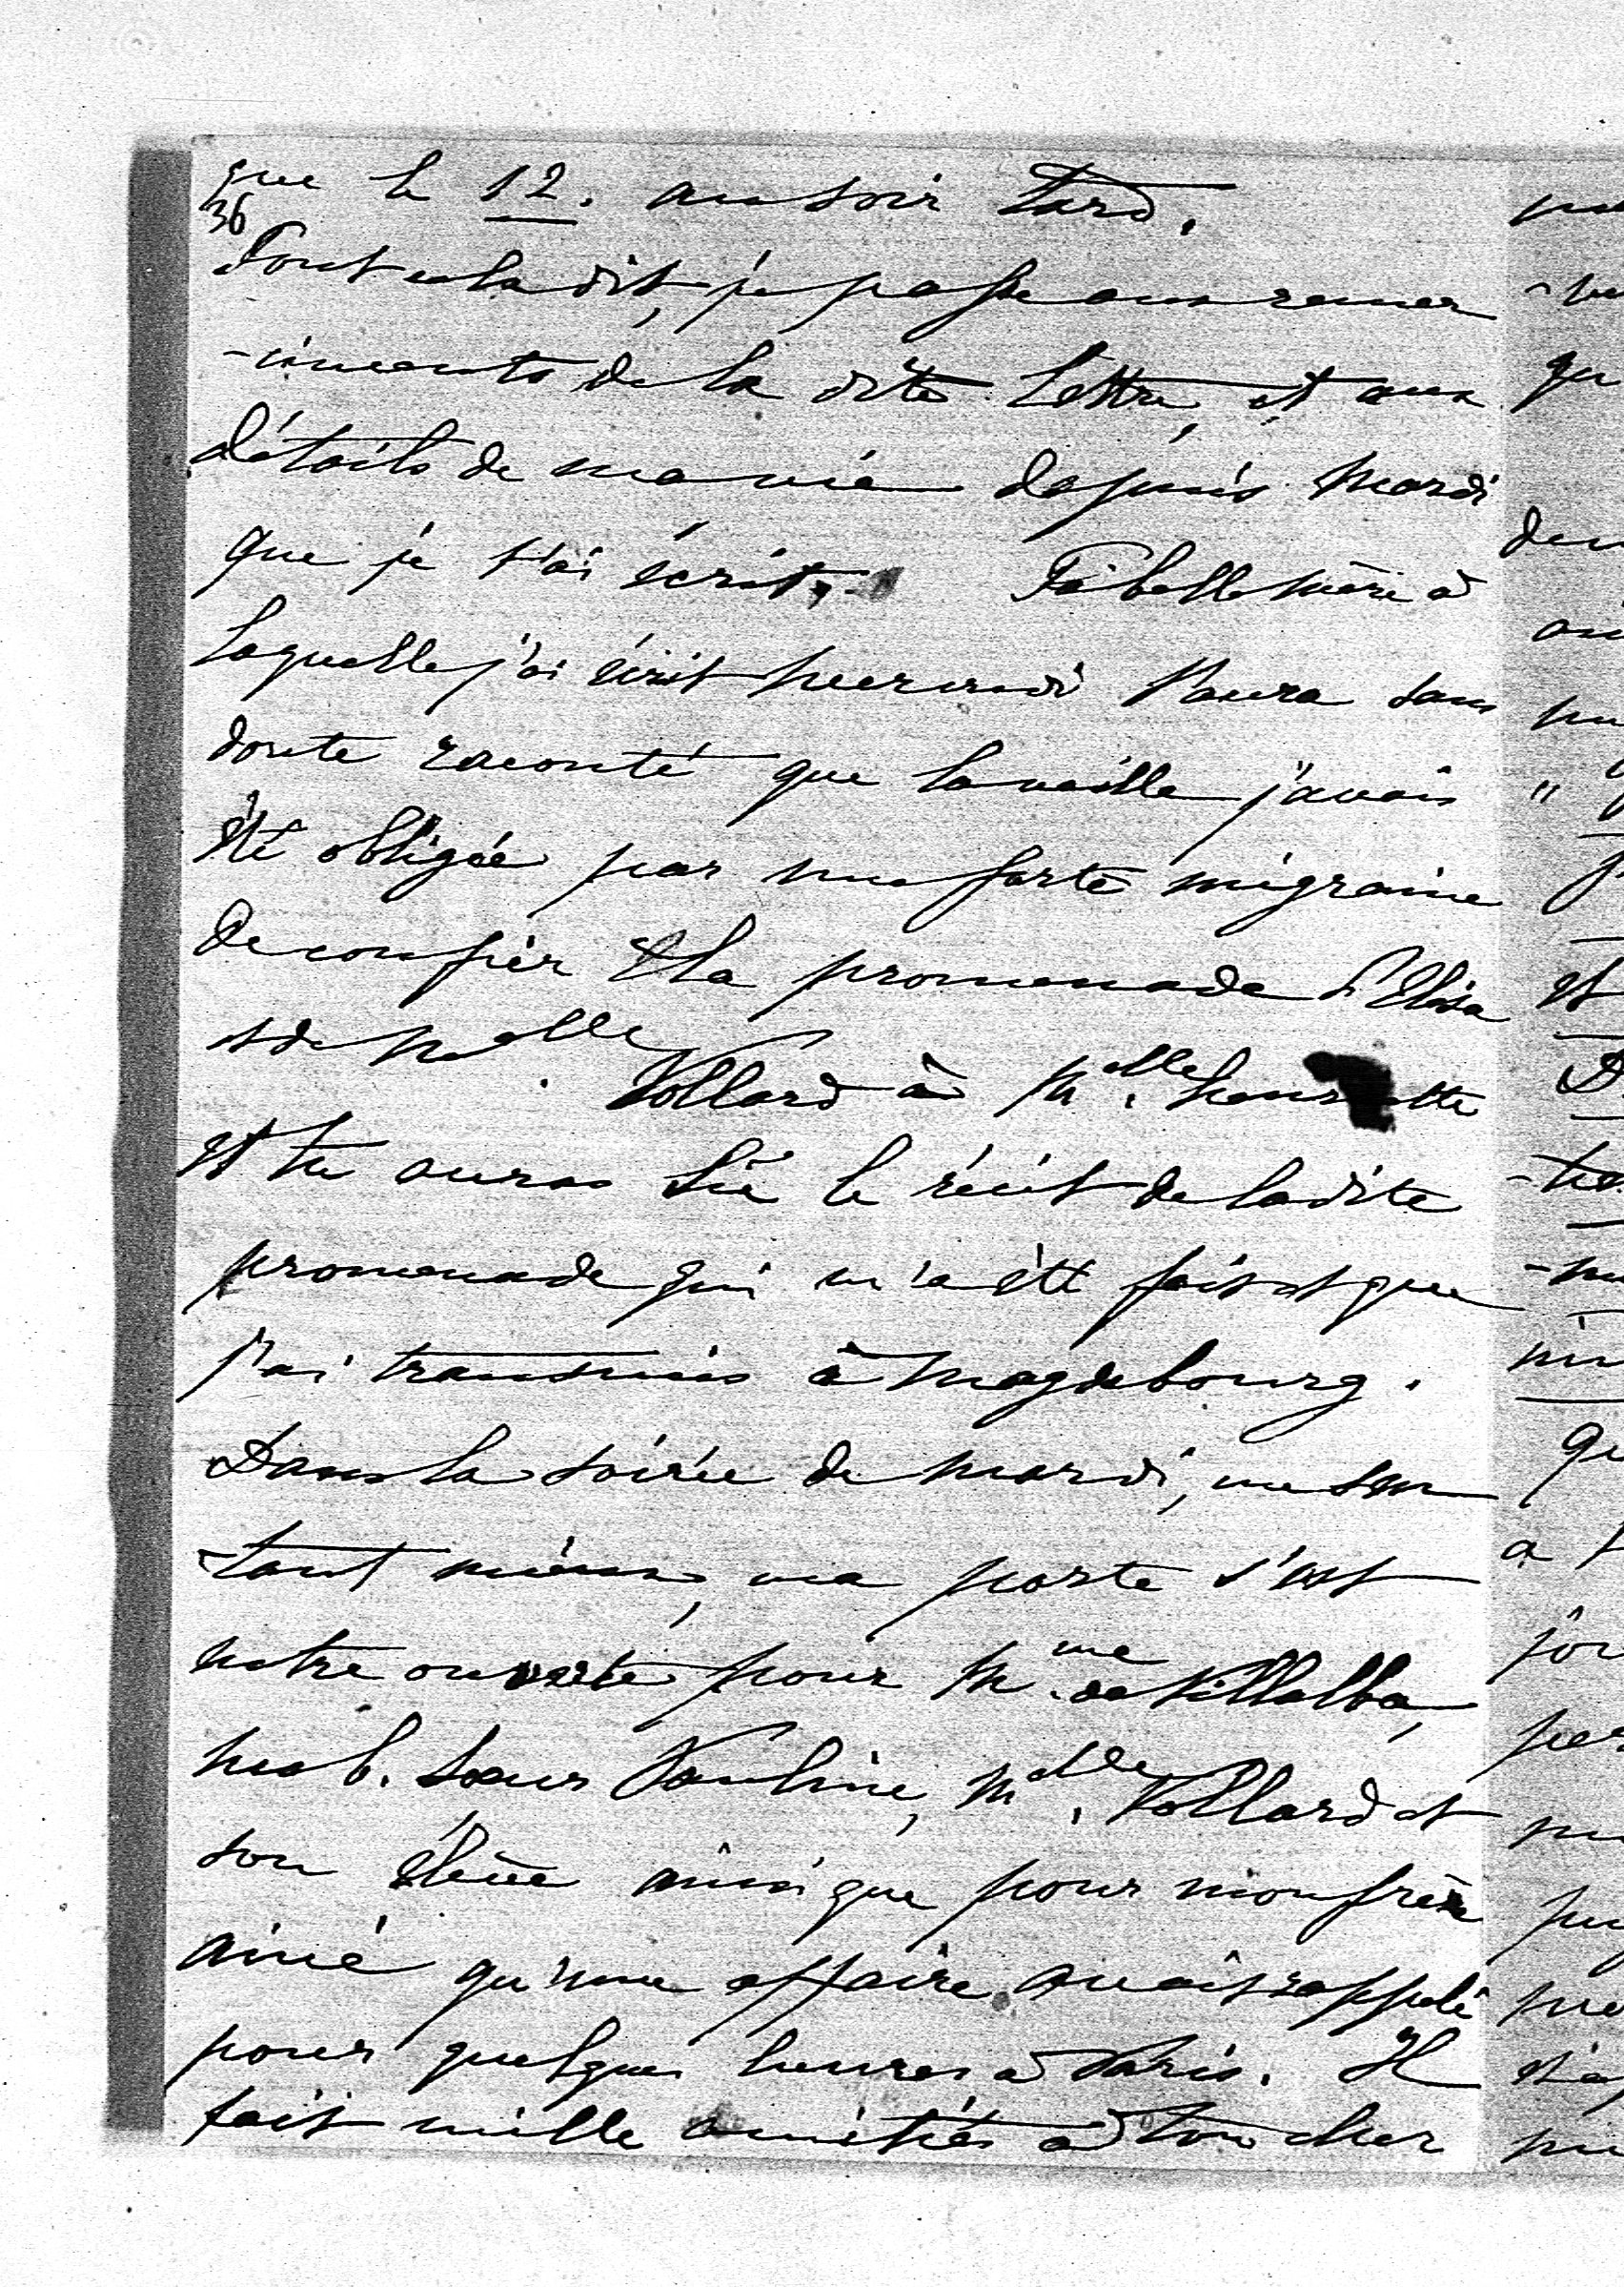 que le 12. au soir tard.
36
Tout cela dit, je passe aux remer
-ciments de la dite lettre, et aux
détails de ma vie depuis mardi
que je t'ai écrit. Ta belle mère à
laquelle j'ai écrit mercredi t'aura sans
doute raconté que la veille j'avais
été obligée par une forte migraine
de confier la promenade d'Elisa
et de Melle Vollard à Melle Henriette
et tu auras lu le récit de la dite
promenade qui m'a été fait et que
j'ai transmis à Magdebourg.
Dans la soirée de mardi, me sen
-tant mieux, ma porte s'est
ouverte pour Mme de Villalba,
ma b. sœur Pauline, Melle Vollard et
son élève ainsi que pour mon frère
ainé qu'une affaire avait rappelé
pour quelques heures à Paris. Il
fait mille amitiés à ton cher